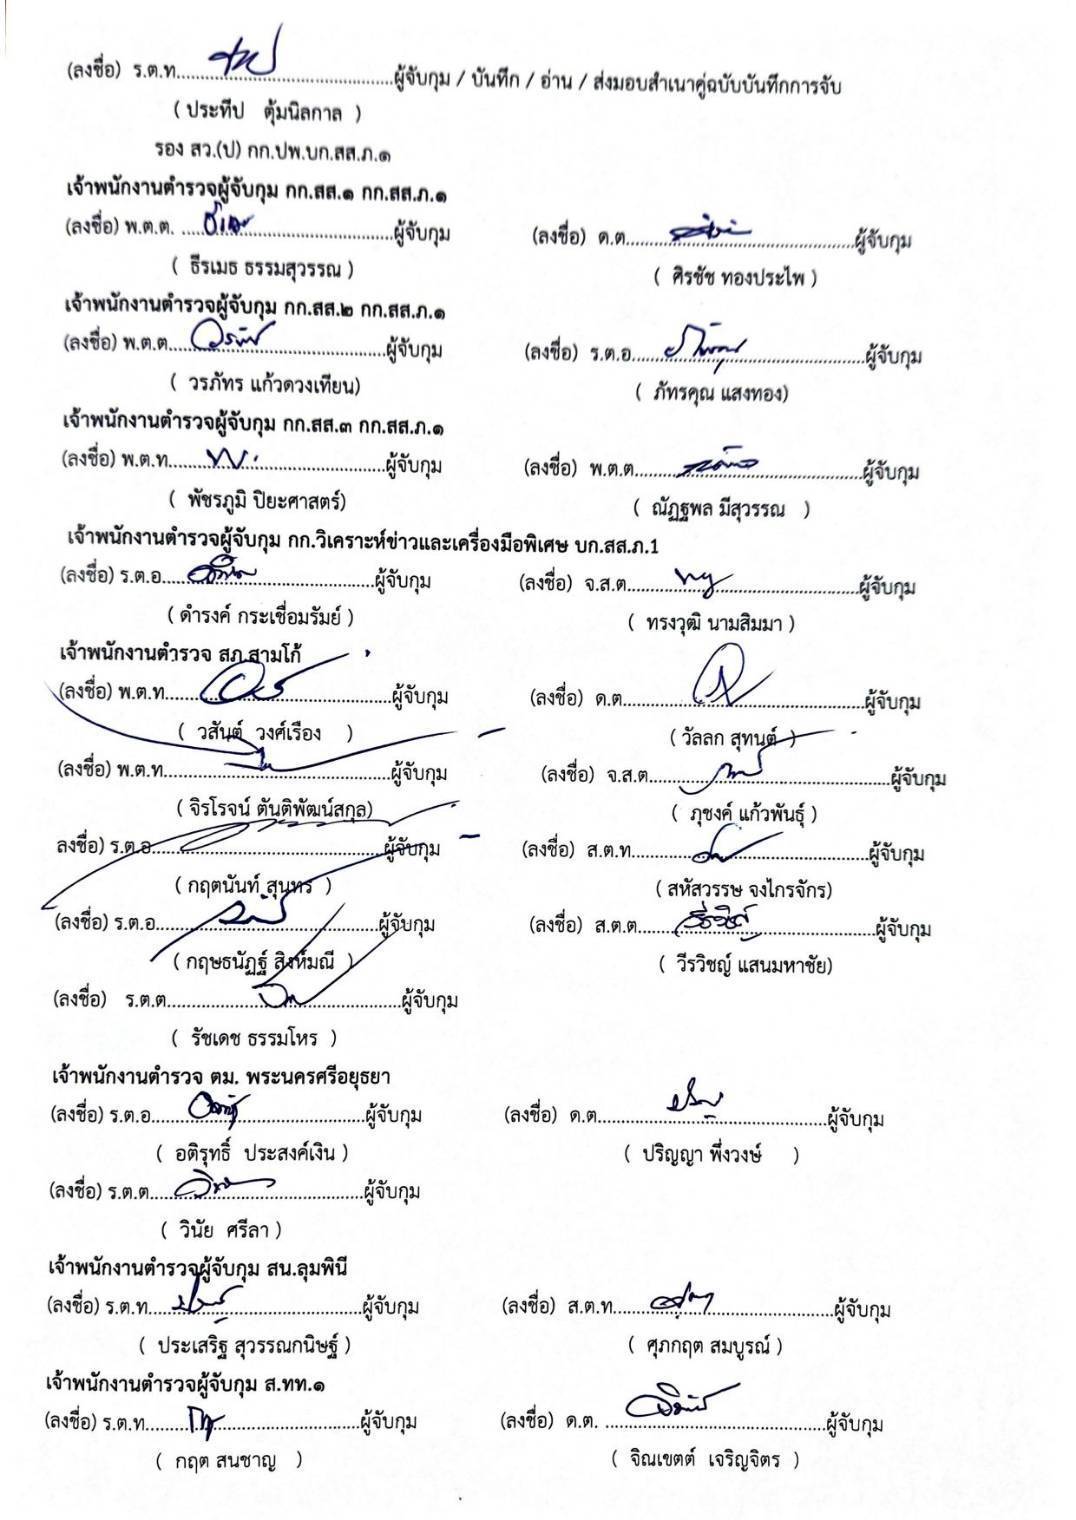 (ลงชื่อ) ร.ต.ท. ผู้จับกุม / บันทึก / อ่าน / ส่งมอบสำเนาคู่ฉบับบันทึกการจับ
( ประทีป ตุ้มนิลกาล )
รอง สว.(ป) กก.ปพ.บก.สส.ภ.๑
เจ้าพนักงานตำรวจผู้จับกุม กก.สส.๑ กก.สส.ภ.๑
(ลงชื่อ) พ.ต.ต. ผู้จับกุม (ลงชื่อ) ด.ต. ผู้จับกุม
( ธีรเมธ ธรรมสุวรรณ ) ( ศิรชัช ทองประไพ )
เจ้าพนักงานตำรวจผู้จับกุม กก.สส.๒ กก.สส.ภ.๑
(ลงชื่อ) พ.ต.ต. ผู้จับกุม (ลงชื่อ) ร.ต.อ. ผู้จับกุม
( วรภัทร แก้วดวงเทียน) ( ภัทรคุณ แสงทอง)
เจ้าพนักงานตำรวจผู้จับกุม กก.สส.๓ กก.สส.ภ.๑
(ลงชื่อ) พ.ต.ท. ผู้จับกุม (ลงชื่อ) พ.ต.ต. ผู้จับกุม
( พัชรภูมิ ปิยะศาสตร์) ( ณัฏฐพล มีสุวรรณ )
เจ้าพนักงานตำรวจผู้จับกุม กก.วิเคราะห์ข่าวและเครื่องมือพิเศษ บก.สส.ภ.1
(ลงชื่อ) ร.ต.อ. ผู้จับกุม (ลงชื่อ) จ.ส.ต. ผู้จับกุม
( ดำรงค์ กระเชื่อมรัมย์ ) ( ทรงวุฒิ นามสิมมา )
เจ้าพนักงานตำรวจ สภ.สามโก้
(ลงชื่อ) พ.ต.ท. ผู้จับกุม (ลงชื่อ) ด.ต. ผู้จับกุม
( วสันต์ วงศ์เรือง ) ( วัลลภ สุทนต์ )
(ลงชื่อ) พ.ต.ท. ผู้จับกุม (ลงชื่อ) จ.ส.ต. ผู้จับกุม
( จิรโรจน์ ตันติพัฒน์สกุล) ( ภุชงค์ แก้วพันธุ์ )
ลงชื่อ) ร.ต.อ. ผู้จับกุม (ลงชื่อ) ส.ต.ท. ผู้จับกุม
( กฤตนันท์ สุนทร ) ( สหัสวรรษ จงไกรจักร)
(ลงชื่อ) ร.ต.อ. ผู้จับกุม (ลงชื่อ) ส.ต.ต. ผู้จับกุม
( กฤษธนัฏฐ์ สิงห์มณี ) ( วีรวิชญ์ แสนมหาชัย)
(ลงชื่อ) ร.ต.ต. ผู้จับกุม
( รัชเดช ธรรมโหร )
เจ้าพนักงานตำรวจ ตม. พระนครศรีอยุธยา
(ลงชื่อ) ร.ต.อ. ผู้จับกุม (ลงชื่อ) ด.ต. ผู้จับกุม
( อติรุทธิ์ ประสงค์เงิน ) ( ปริญญา พึ่งวงษ์ )
(ลงชื่อ) ร.ต.ต. ผู้จับกุม
( วินัย ศรีลา )
เจ้าพนักงานตำรวจผู้จับกุม สน.ลุมพินี
(ลงชื่อ) ร.ต.ท. ผู้จับกุม (ลงชื่อ) ส.ต.ท. ผู้จับกุม
( ประเสริฐ สุวรรณกนิษฐ์ ) ( ศุภกฤต สมบูรณ์ )
เจ้าพนักงานตำรวจผู้จับกุม ส.ทท.๑
(ลงชื่อ) ร.ต.ท. ผู้จับกุม (ลงชื่อ) ด.ต. ผู้จับกุม
( กฤต สนชาญ ) ( จิณเขตต์ เจริญจิตร )